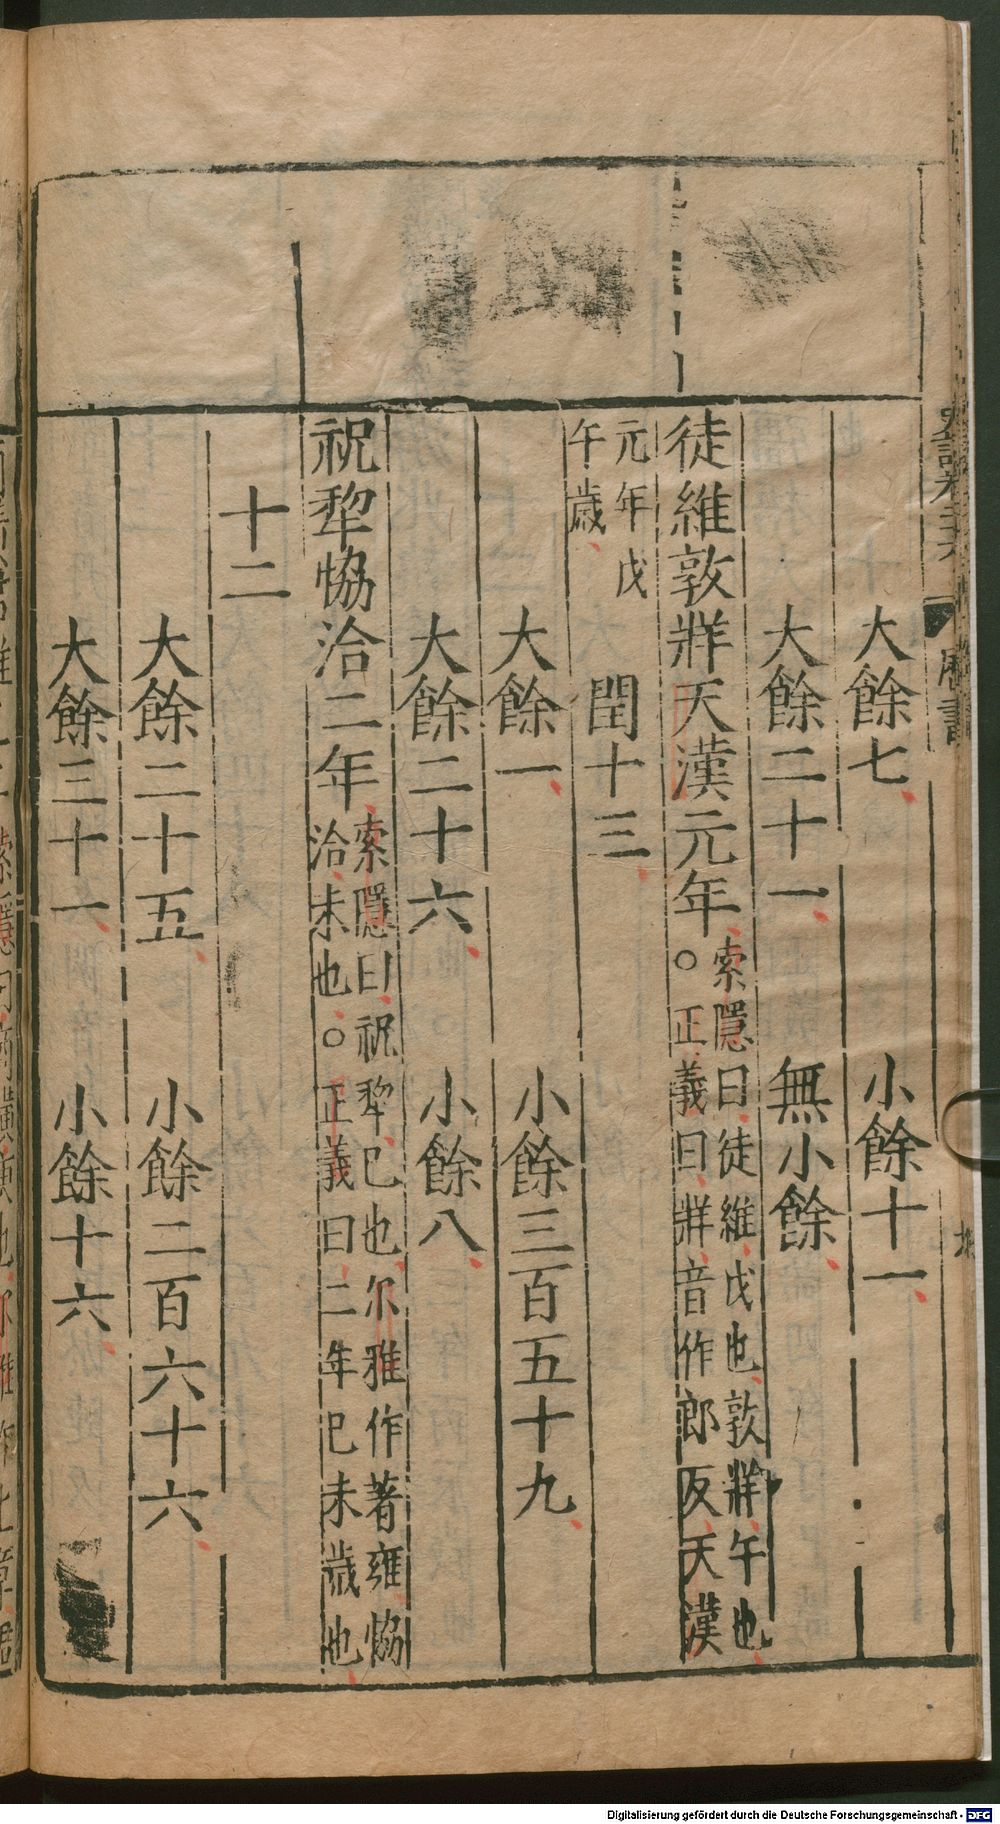 大餘七 小餘十一
大餘二十一 無小餘
徒維敦牂天漢元年 索隱曰徒維戊也敦牂午也
○正義曰牂音作郎反天漢
元年戊
午歲
閏十三
大餘一 小餘三百五十九
大餘二十六 小餘八
祝犂協洽二年 索隱曰祝犂巳也尔雅作著雍協
洽未也○正義曰二年巳未歲也
十二
大餘二十五 小餘二百六十六
大餘三十一 小餘十六
Digitalisierung gefördert durch die Deutsche Forschungsgemeinschaft - DFG